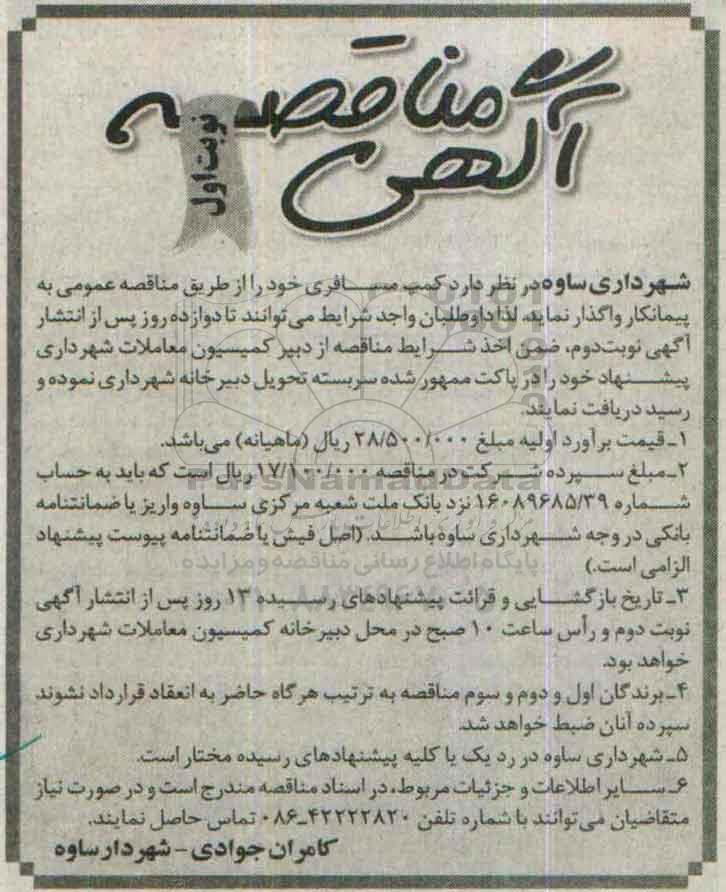 آگهی مناقصه
نوبت اول
شهرداری ساوه در نظر دارد کمپ مسافری خود را از طریق مناقصه عمومی به
پیمانکار واگذار نماید، لذا داوطلبان واجد شرایط می‌توانند تا دوازده روز پس از انتشار
آگهی نوبت دوم، ضمن اخذ شرایط مناقصه از دبیر کمیسیون معاملات شهرداری
پیشنهاد خود را در پاکت ممهور شده سربسته تحویل دبیرخانه شهرداری نموده و
رسید دریافت نمایند.
۱ـ قیمت برآورد اولیه مبلغ ۲۸/۵۰۰/۰۰۰ ریال (ماهیانه) می‌باشد.
۲ـ مبلغ سپرده شرکت در مناقصه ۱۷/۱۰۰/۰۰۰ ریال است که باید به حساب
شماره ۱۶۰۸۹۶۸۵/۳۹ نزد بانک ملت شعبه مرکزی ساوه واریز یا ضمانتنامه
بانکی در وجه شهرداری ساوه باشد. (اصل فیش یا ضمانتنامه پیوست پیشنهاد
الزامی است.)
۳ـ تاریخ بازگشایی و قرائت پیشنهادهای رسیده ۱۳ روز پس از انتشار آگهی
نوبت دوم و رأس ساعت ۱۰ صبح در محل دبیرخانه کمیسیون معاملات شهرداری
خواهد بود.
۴ـ برندگان اول و دوم و سوم مناقصه به ترتیب هرگاه حاضر به انعقاد قرارداد نشوند
سپرده آنان ضبط خواهد شد.
۵ـ شهرداری ساوه در رد یک یا کلیه پیشنهادهای رسیده مختار است.
۶ـ سایر اطلاعات و جزئیات مربوط، در اسناد مناقصه مندرج است و در صورت نیاز
متقاضیان می‌توانند با شماره تلفن ۴۲۲۲۲۸۲۰ـ۰۸۶ تماس حاصل نمایند.
کامران جوادی - شهردار ساوه
ParsNamadData
پایگاه اطلاع رسانی مناقصه و مزایده